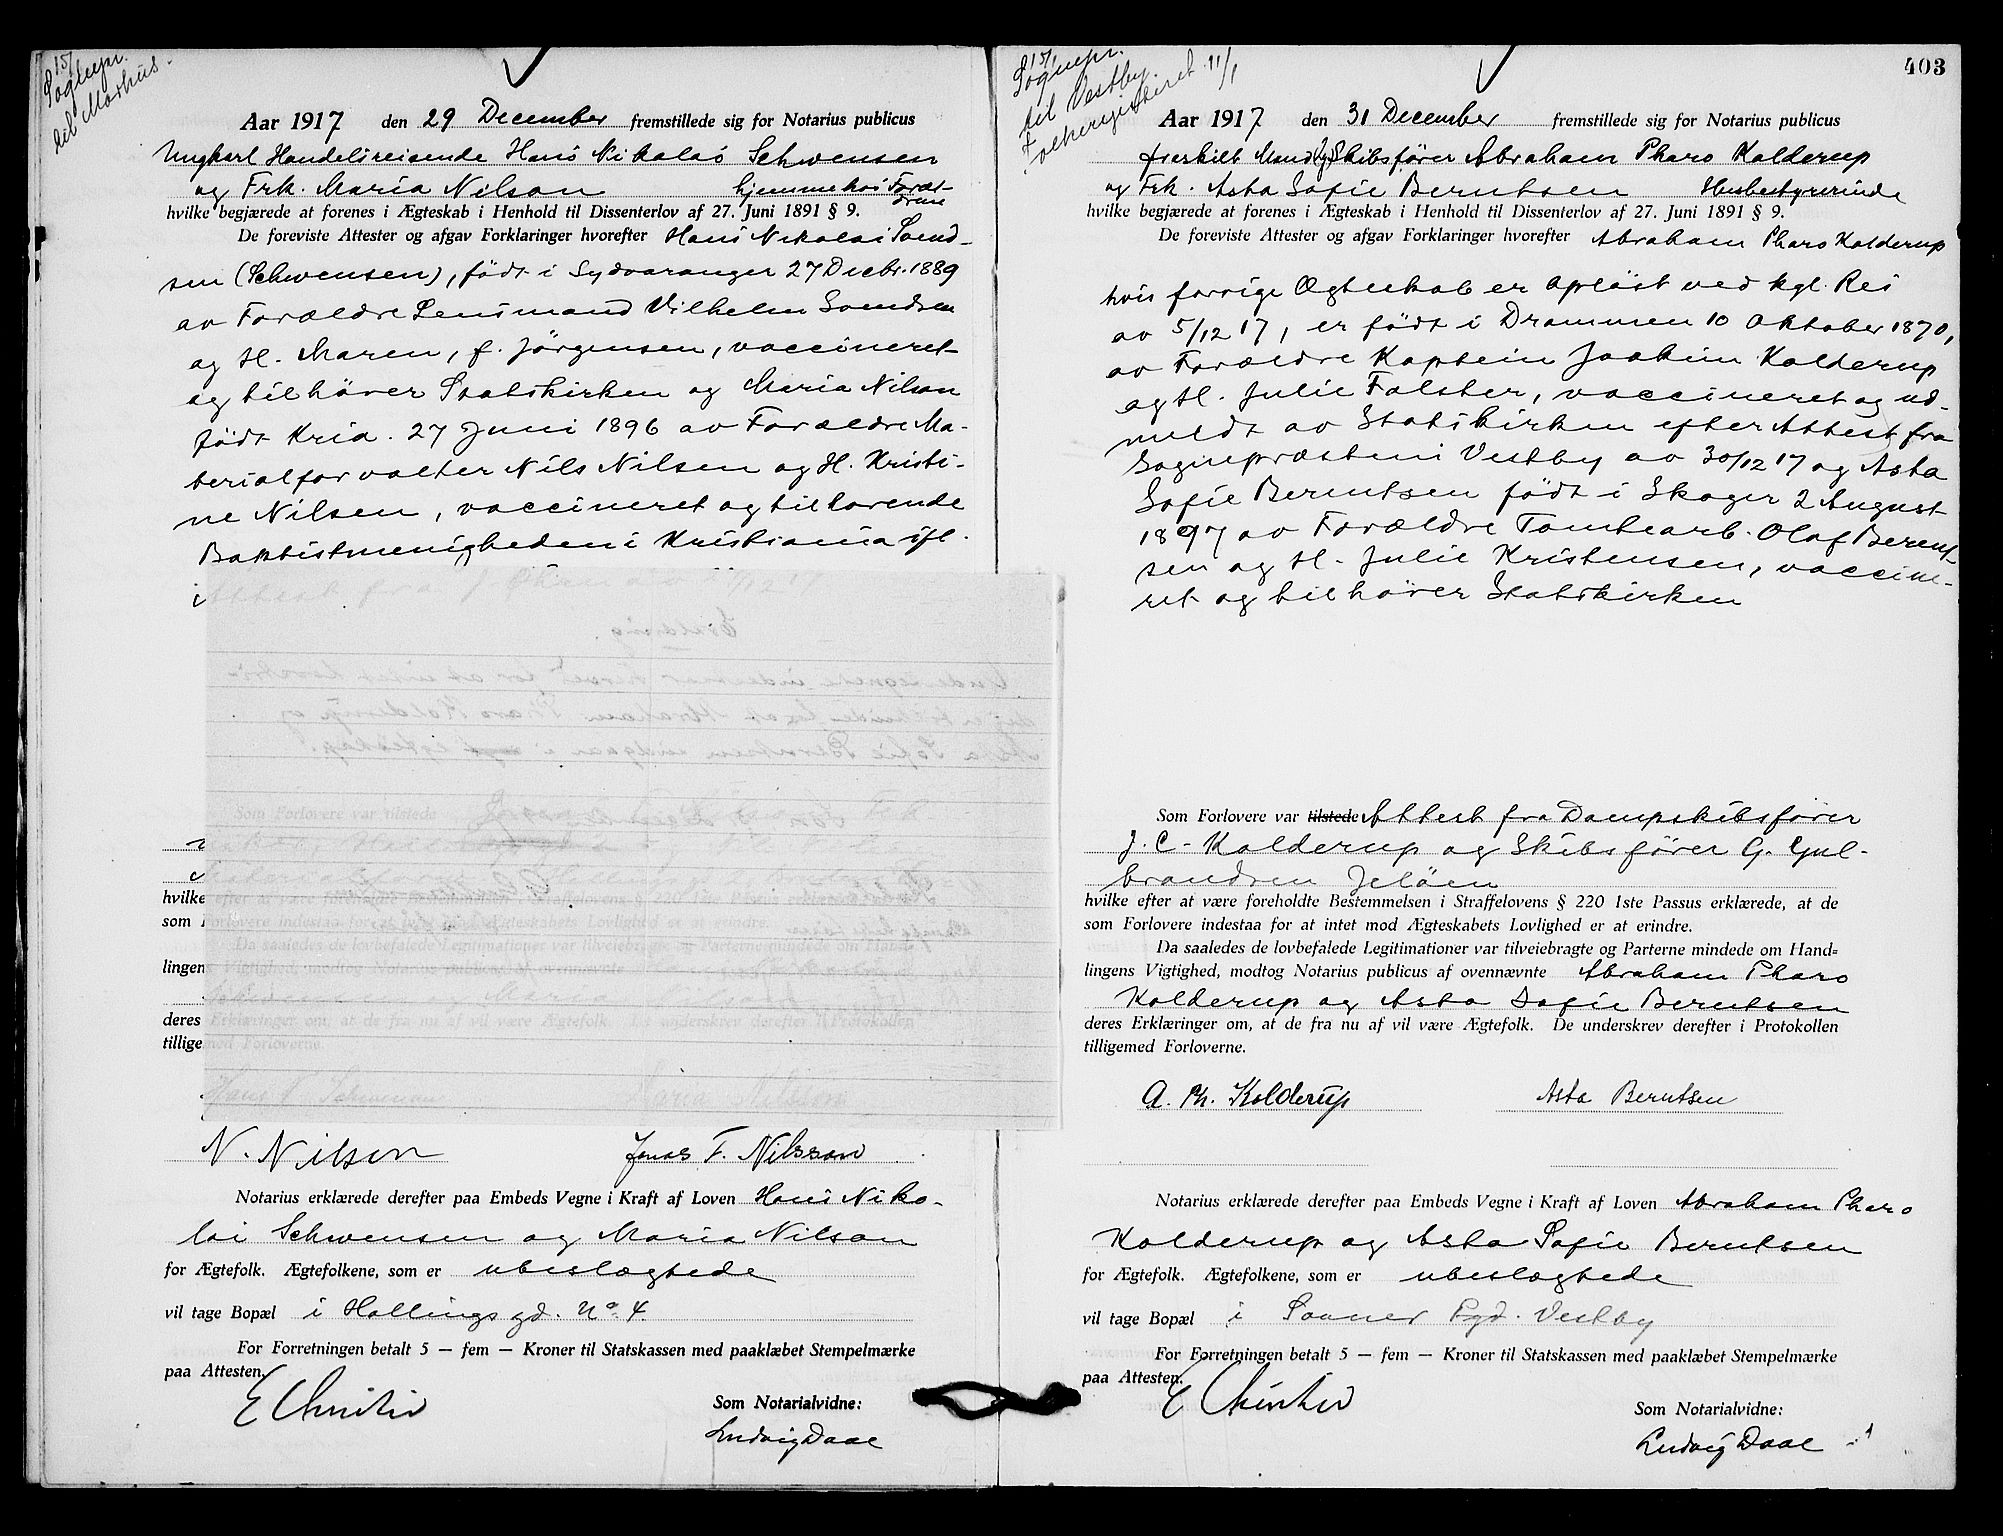 15/1
Sognepr.
til Markus.
Aar 1917 den 29 December fremstillede sig for Notarius publicus
Ungkarl Handelsreisende Hans Nikolai Schwensen
og Frk. Maria Nilson hjemme hos Foræl-
drene
hvilke begjærede at forenes i Ægteskab i Henhold til Dissenterlov af 27. Juni 1891 § 9.
De foreviste Attester og afgav Forklaringer hvorefter Hans Nikolai Svend-
sen (Schwensen), född i Sydvaranger 27 Decbr. 1889
av Forældre Lensmand Vilhelm Svendsen
og H. Maren, f. Jörgensen, vaccineret
og tilhörer Statskirken og Maria Nilson
född Kria. 27 Juni 1896 av Forældre Ma-
terialforvalter Nils Nilsen og H. Kristi-
ne Nilsen, vaccineret og tilhörende
Baptistmenigheden i Kristiania ifl.
Som Forlovere var tilstede
hvilke efter at være foreholdte Bestemmelsen i Straffelovens § 220 1ste Passus erklærede, at de
som Forlovere indestaa for at intet mod Ægteskabets Lovlighed er at erindre.
Da saaledes de lovbefalede Legitimationer var tilveiebragte og Parterne mindede om Hand-
lingens Vigtighed, modtog Notarius publicus af ovennævnte
deres Erklæringer om, at de fra nu af vil være Ægtefolk. De underskrev derefter i Protokollen
tilligemed Forloverne.
Hans N. Schwensen Maria Nilsson
N. Nilson Jonas F. Nilsson
Notarius erklærede derefter paa Embeds Vegne i Kraft af Loven Hans Niko-
lai Schwensen og Maria Nilson
for Ægtefolk. Ægtefolkene, som er ubeslægtede
vil tage Bopæl i Hallings gd. No. 4
For Forretningen betalt 5 — fem — Kroner til Statskassen med paaklæbet Stempelmærke
paa Attesten.
E Christie
Som Notarialvidne:
Ludvig Daae
403
15/1
Sognepr.
til Vestby
Folkeregisteret 11/1
Aar 1917 den 31 December fremstillede sig for Notarius publicus
fraskilt Mand Skibsförer Abraham Pharo Kolderup
og Frk. Asta Sofie Berntsen Husbestyrerinde
hvilke begjærede at forenes i Ægteskab i Henhold til Dissenterlov af 27. Juni 1891 § 9.
De foreviste Attester og afgav Forklaringer hvorefter Abraham Pharo Kolderup
hvis forrige Ægteskab er oplöst ved kgl. Res
av 5/12 17, er född i Drammen 10 Oktober 1870,
av Forældre Kaptein Joakim Kolderup
og H. Julie Falster, vaccineret og ud-
meldt av Statskirken efter Attest fra
Sognepræsten i Vestby av 30/12 17 og Asta
Sofie Berntsen född i Skoger 2 August
1897 av Forældre Tomtearb. Olaf Bernt-
sen og H. Julie Kristensen, vaccine-
ret og tilhörer Statskirken
Som Forlovere var tilstede Attest fra Dampskibsförer
J. C. Kolderup og Skibsförer G. Gul-
brandsen Jelöen
hvilke efter at være foreholdte Bestemmelsen i Straffelovens § 220 1ste Passus erklærede, at de
som Forlovere indestaa for at intet mod Ægteskabets Lovlighed er at erindre.
Da saaledes de lovbefalede Legitimationer var tilveiebragte og Parterne mindede om Hand-
lingens Vigtighed, modtog Notarius publicus af ovennævnte Abraham Pharo
Kolderup og Asta Sofie Berntsen
deres Erklæringer om, at de fra nu af vil være Ægtefolk. De underskrev derefter i Protokollen
tilligemed Forloverne.
A. Ph. Kolderup Asta Berntsen
Notarius erklærede derefter paa Embeds Vegne i Kraft af Loven Abraham Pharo
Kolderup og Asta Sofie Berntsen
for Ægtefolk. Ægtefolkene, som er ubeslægtede
vil tage Bopæl i Sooner Pgd. Vestby
For Forretningen betalt 5 — fem — Kroner til Statskassen med paaklæbet Stempelmærke
paa Attesten.
E Christie
Som Notarialvidne:
Ludvig Daae